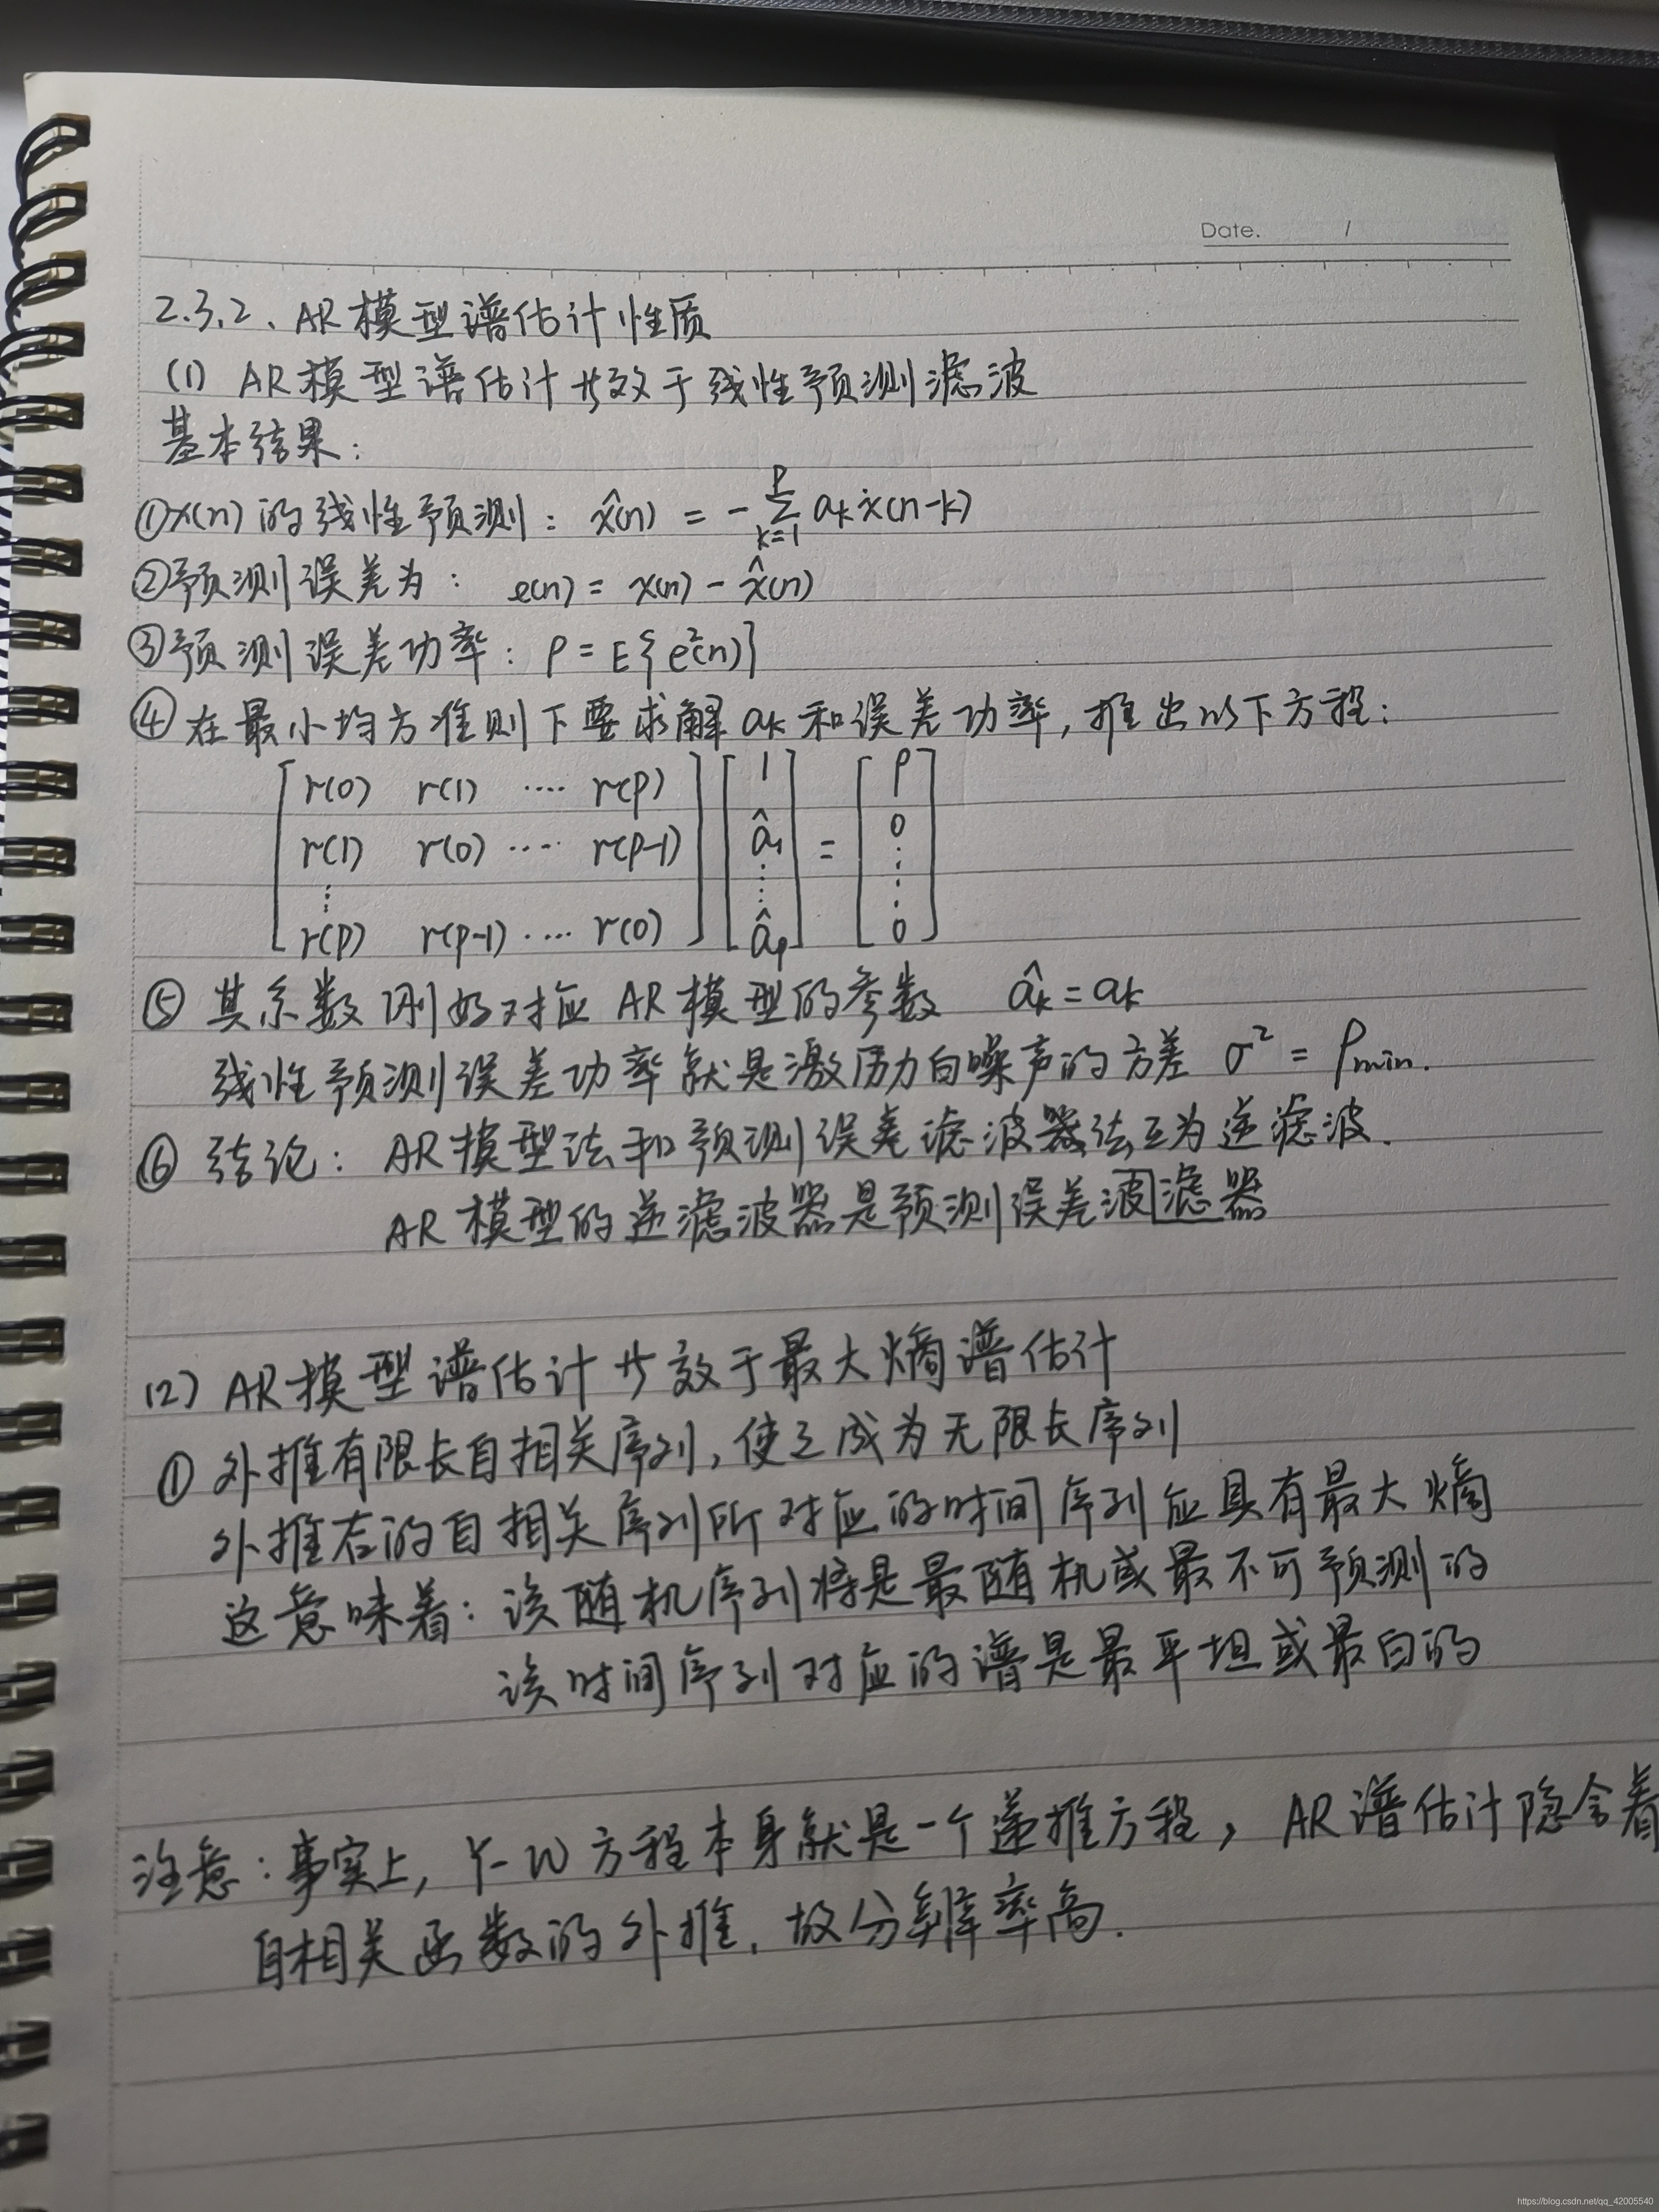 Date. /
2.3.2、AR模型谱估计性质
(1) AR模型谱估计等效于线性预测滤波
基本结果:
①x(n)的线性预测: x̂(n) = -∑_{k=1}^{P} aₖx(n-k)
②预测误差为: e(n) = x(n) - x̂(n)
③预测误差功率: ρ = E{e²(n)}
④在最小均方准则下要求解aₖ和误差功率,推出以下方程:
[r(0) r(1) ···· r(p)] [1] = [ρ]
[r(1) r(0) ···· r(p-1)] [â₁] [0]
[⋮] [⋮] [⋮]
[r(p) r(p-1) ···· r(0)] [âₚ] [0]
⑤ 其系数刚好对应AR模型的参数 âₖ = aₖ
线性预测误差功率就是激励白噪声的方差 σ² = ρmin.
⑥ 结论: AR模型法和预测误差滤波器法互为逆滤波.
AR模型的逆滤波器是预测误差波滤器
(2) AR模型谱估计等效于最大熵谱估计
① 外推有限长自相关序列,使之成为无限长序列
外推后的自相关序列所对应的时间序列应具有最大熵
这意味着: 该随机序列将是最随机或最不可预测的
该时间序列对应的谱是最平坦或最白的
注意:事实上, Y-W方程本身就是一个递推方程, AR谱估计隐含着
自相关函数的外推, 故分辨率高.
https://blog.csdn.net/qq_42005540